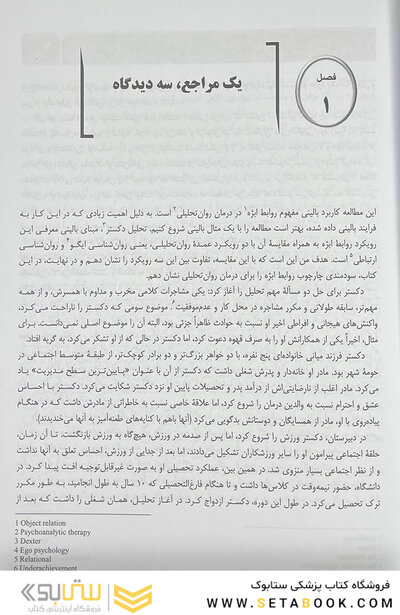 فصل
۱
یک مراجع، سه دیدگاه
این مطالعه کاربرد بالینی مفهوم روابط ابژه¹ در درمان روان‌تحلیلی² است. به دلیل اهمیت زیادی که در این کار به
فرایند بالینی داده شده، بهتر است مطالعه را با یک مثال بالینی شروع کنیم. تحلیل دکستر³، مبنای بالینی معرفی این
رویکرد روابط ابژه به همراه مقایسهٔ آن با دو رویکرد عمدهٔ روان‌تحلیلی، یعنی روان‌شناسی ایگو⁴ و روان‌شناسی
ارتباطی⁵ است. هدف من این است که با این مقایسه، تفاوت بین این سه رویکرد را نشان دهم و در نهایت، در این
کتاب، سودمندی چارچوب روابط ابژه را برای درمان روان‌تحلیلی نشان دهم.
دکستر برای حل دو مسألهٔ مهم تحلیل را آغاز کرد: یکی مشاجرات کلامی مخرب و مداوم با همسرش، و از همه
مهم‌تر، سابقه طولانی و مکرر مشاجره در محل کار و عدم‌موفقیت⁶. موضوع سومی که دکستر را ناراحت می‌کرد،
واکنش‌های هیجانی و افراطی اخیر او نسبت به حوادث ظاهراً جزئی بود، البته آن را موضوع اصلی نمی‌دانست. برای
مثال، اخیراً یکی از همکارانش او را به صرف قهوه دعوت کرد، اما دکستر در حالی که از او تشکر می‌کرد، به گریه افتاد.
دکستر فرزند میانی خانواده‌ای پنج نفره، با دو خواهر بزرگ‌تر و دو برادر کوچک‌تر، از طبقهٔ متوسط اجتماعی در
حومهٔ شهر بود. مادر او خانه‌دار و پدرش شغلی داشت که دکستر از آن با عنوان «پایین‌ترین سطح مدیریت» یاد
می‌کرد. مادر اغلب از نارضایتی‌اش از درآمد پدر و تحصیلات پایین او نزد دکستر شکایت می‌کرد. دکستر با احساس
عشق و احترام نسبت به والدین درمان را شروع کرد، اما علاقهٔ خاصی نسبت به خاطراتی از مادرش داشت که در هنگام
پیاده‌روی با او، مادر از همسایگان و دوستانش بدگویی می‌کرد (آنها باهم با کنایه‌های طعنه‌آمیز به آنها می‌خندیدند).
در دبیرستان، دکستر ورزش را شروع کرد، اما پس از صدمه در ورزش، هیچ‌گاه به ورزش بازنگشت. تا آن زمان،
حلقهٔ اجتماعی پیرامون او را سایر ورزشکاران تشکیل می‌دادند، اما بعد از جدایی از ورزش، احساس تعلق به آنها نداشت
و از نظر اجتماعی بسیار منزوی شد. در همین بین، عملکرد تحصیلی او به صورت غیرقابل‌توجیه افت پیدا کرد. در
دانشگاه، حضور نیمه‌وقت در کلاس‌ها داشت و تا هنگام فارغ‌التحصیلی که ۱۰ سال به طول انجامید، به طور مکرر
ترک تحصیل می‌کرد. در طول این دوره، دکستر ازدواج کرد. در آغاز تحلیل، همان شغلی را داشت که بعد از
1 Object relation
2 Psychoanalytic therapy
3 Dexter
4 Ego psychology
5 Relational
6 Underachievement
ستابوک
فروشگاه اینترنتی کتاب
فروشگاه کتاب پزشکی ستابوک
WWW.SETABOOK.COM